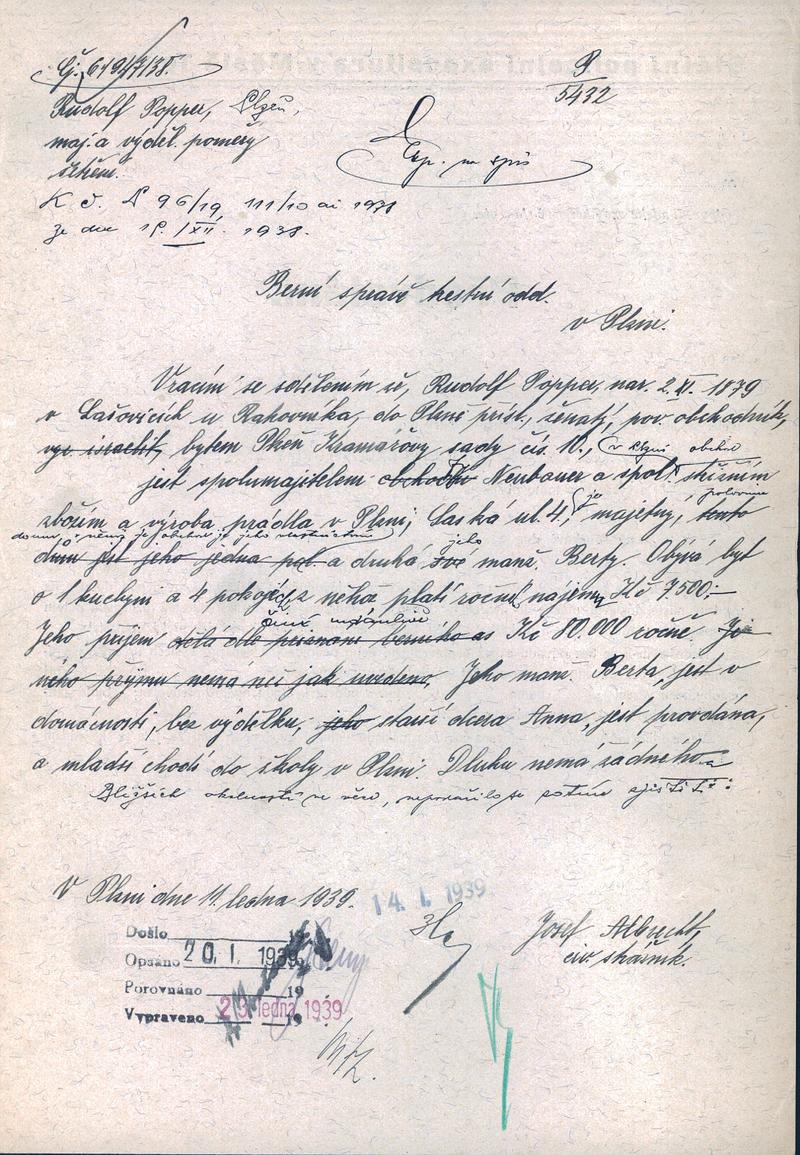 Čj. 61947/38.
P
5432
Rudolf Popper, Plzeň,
maj. a výděl. poměry
šetření.
Exp. na spis
K č. 96/19, 111/10 ai 1938
ze dne 19./XII. 1938.
Berní správě trestní odd.
v Plzni.
Vracím se sdělením že, Rudolf Popper, nar. 2. XI. 1879
v Lašovicích u Rakovníka, do Plzně přísl., ženatý, pov. obchodník,
vyz. israelit, bytem Plzeň Kramářovy sady čís. 10.,
v Plzni obchod
jest spolumajitelem obchodu Neubauer a spol. střižním
zbožím a výroba prádla v Plzni, Saská ul. 4, je majetný, tento
polovina
domu v němž je obchod je jeho vlastnictvím
dům jest jeho jedna pol a druhá své manž. Berty. Obývá byt
jeho
o 1 kuchyni a 4 pokojích z něhož platí ročně nájemu Kč 7.500.-
Jeho příjem dělá dle berního as Kč 80.000 ročně. Ji-
činí
ného příjmu nemá než jak uvedeno. Jeho manž. Berta, jest v
domácnosti, bez výdělku, jeho starší dcera Anna, jest provdána,
a mladší chodí do školy v Plzni. Dluhu nemá žádného
Bližších okolností ve věci, nepodařilo se zjistiti.
V Plzni dne 11. ledna 1939.
14. I. 1939
Josef Albrecht,
civ. strážník.
Došlo 19
Opsáno 20. I. 1939
Porovnáno 19
Vypraveno 23. ledna 1939